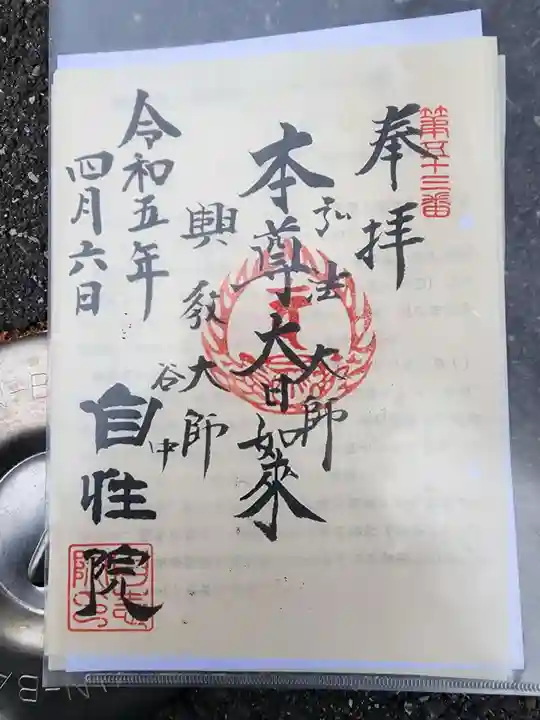 第五十三番
奉拝
弘法大師
本尊大日如来
興教大師
谷中
自性院
令和五年
四月六日